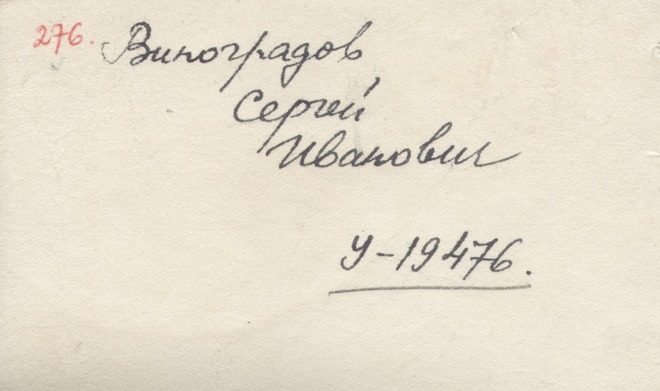 276. Виноградов
Сергей
Иванович
У-19476.